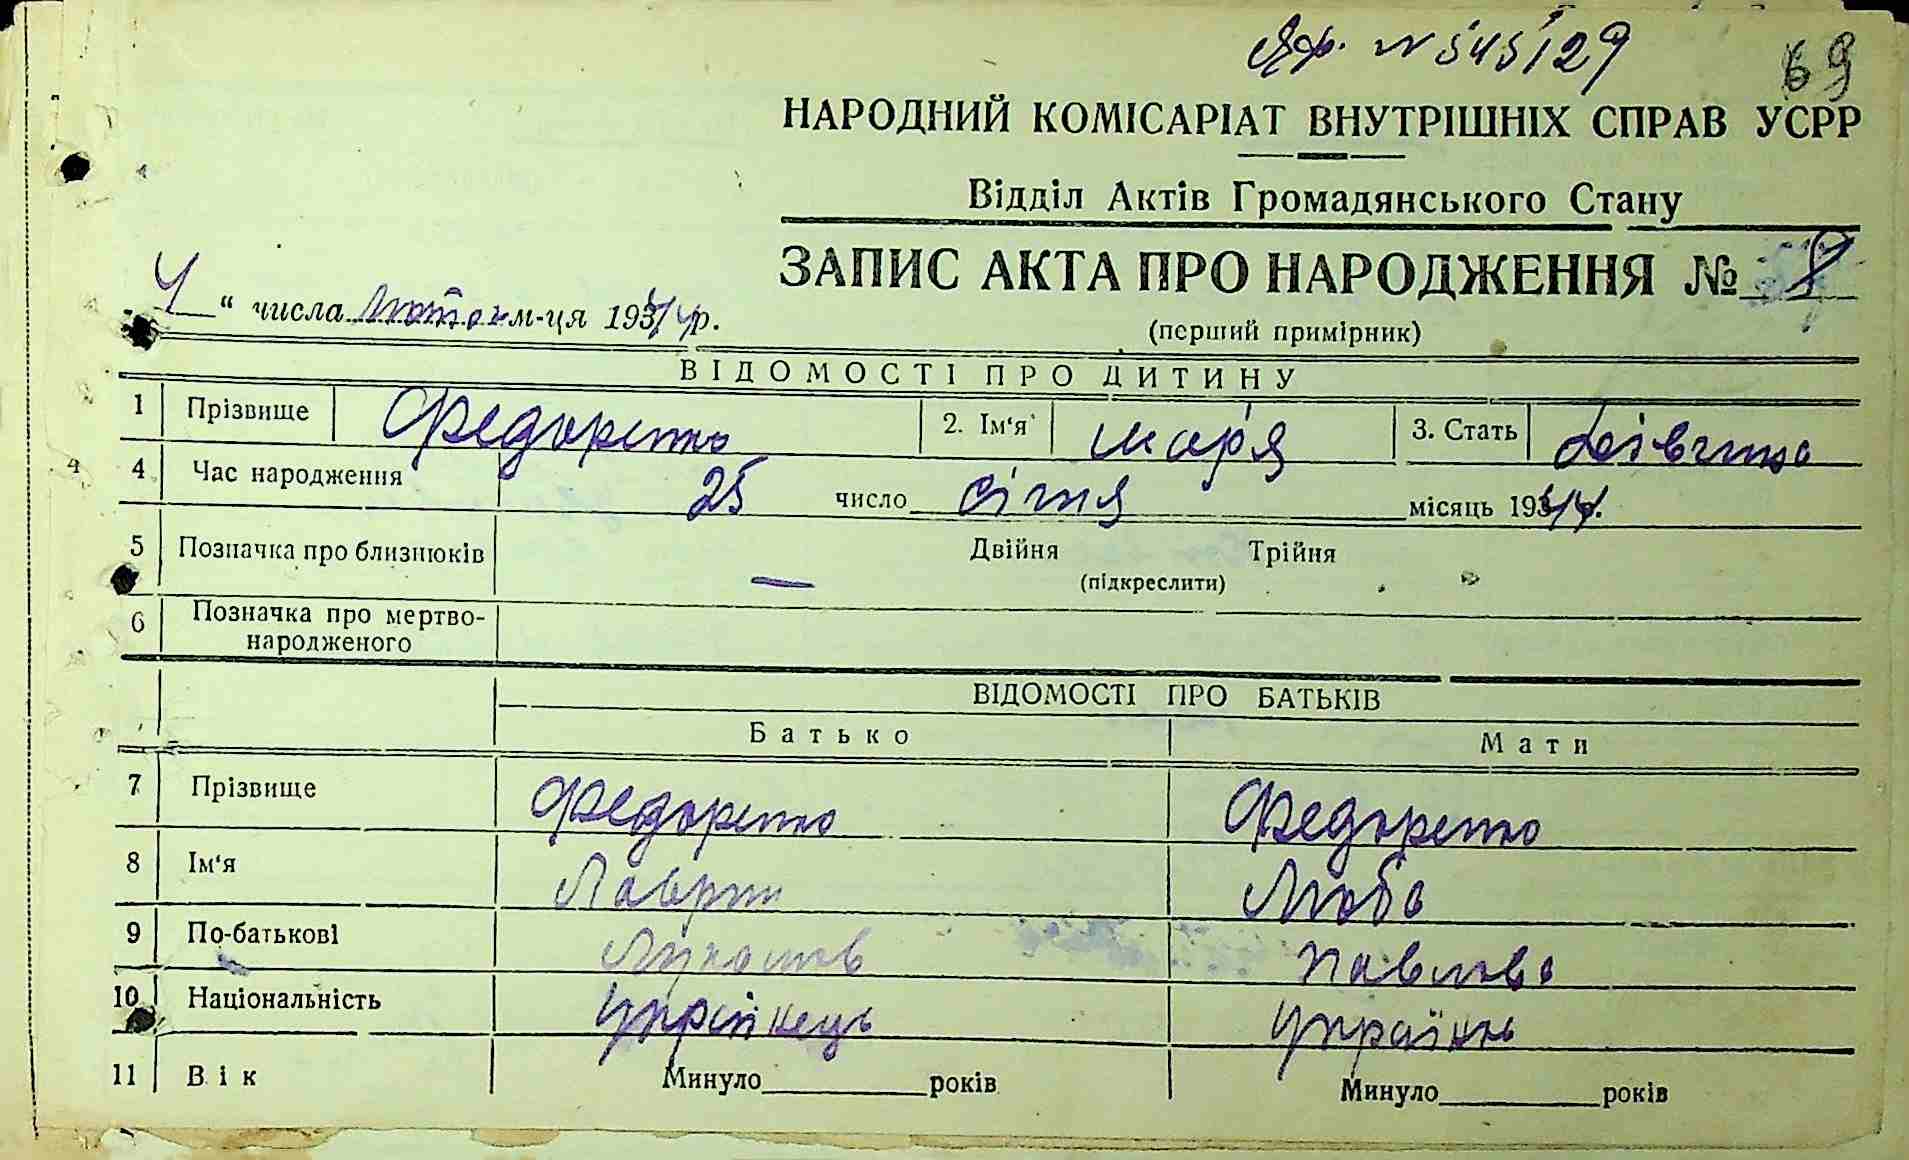 № 545/29 69
НАРОДНИЙ КОМІСАРІАТ ВНУТРІШНІХ СПРАВ УСРР
Відділ Актів Громадянського Стану
ЗАПИС АКТА ПРО НАРОДЖЕННЯ № 8
4 “ числа Лютого м-ця 193 р.
(перший примірник)
ВІДОМОСТІ ПРО ДИТИНУ
1 Прізвище Федоренко 2. Ім‘я Мар'я 3. Стать Дівчина
4 Час народження 25 число січня місяць 193 р.
5 Позначка про близнюків — Двійня Трійня
(підкреслити)
6 Позначка про мертво-
народженого
ВІДОМОСТІ ПРО БАТЬКІВ
Батько Мати
7 Прізвище Федоренко Федоренко
8 Ім‘я Лаврін Люба
9 По-батькові Павлова
10 Національність Українець Українка
11 Вік Минуло років Минуло років